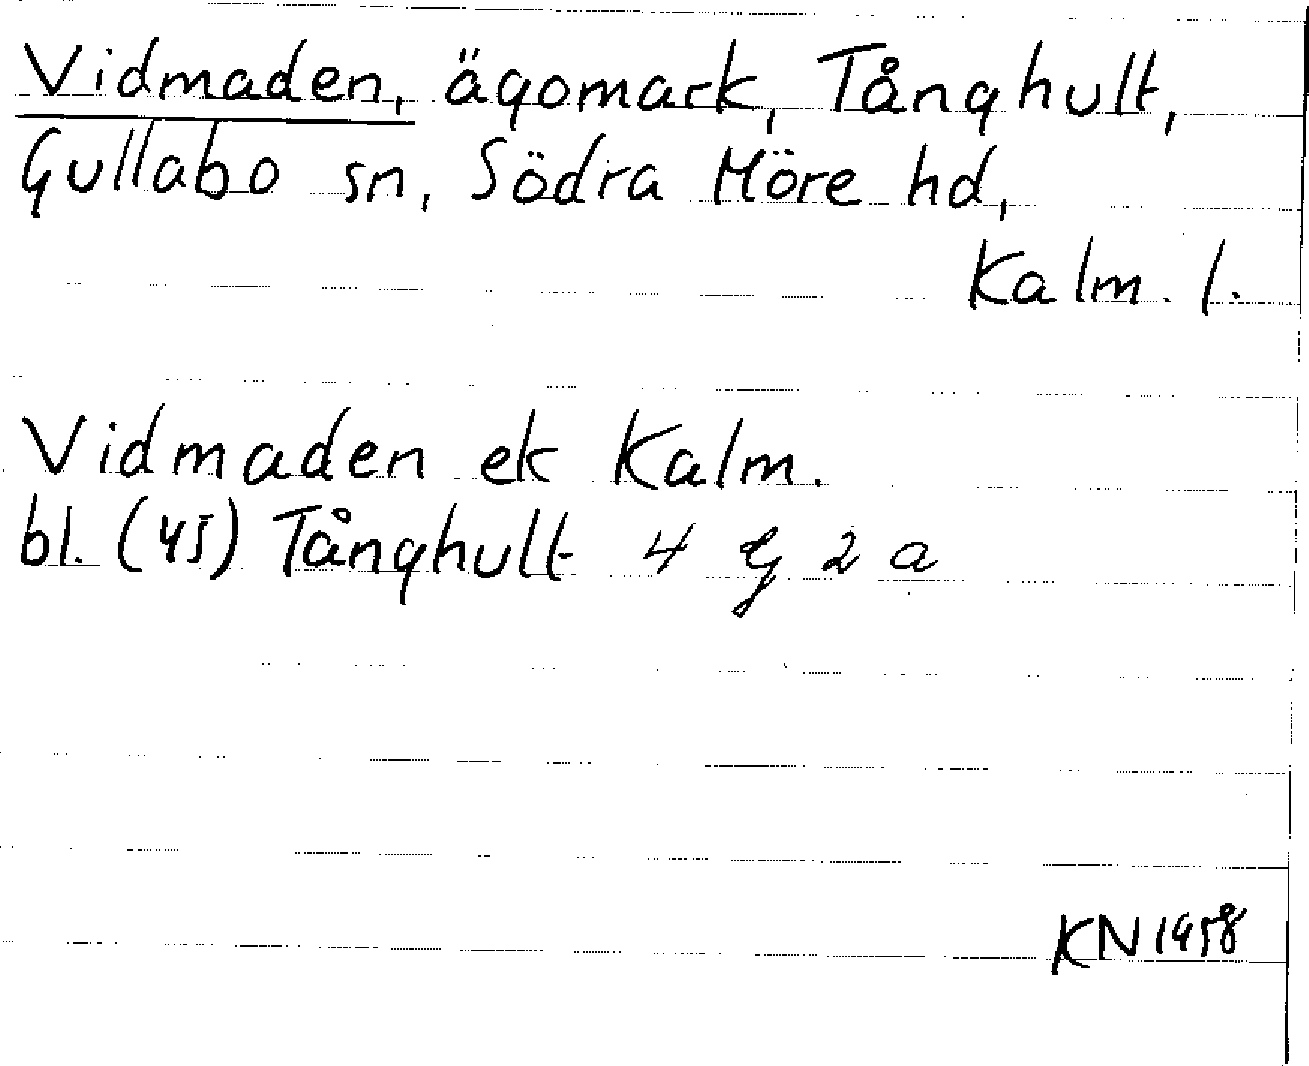 Vidmaden, ägomark, Tånghult,
Gullabo sn, Södra Möre hd,
Kalm. l.
Vidmaden ek Kalm.
bl. (45) Tånghult 4 G 2 a
KN 1958